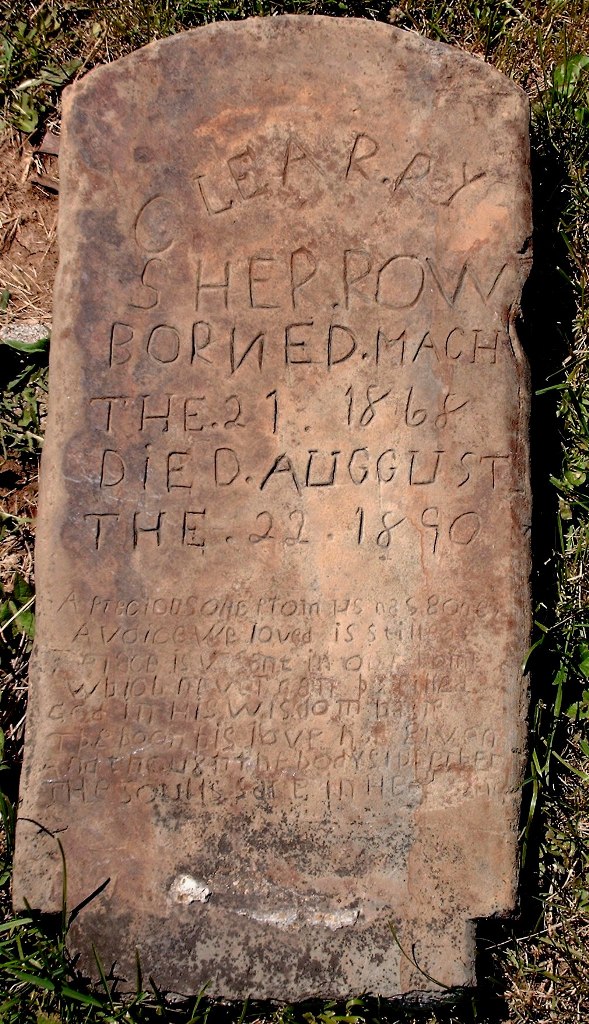 CLEAR.AY
SHER.ROW
BORNED.MACH
THE.21.1868
DiED.AUGGUST
THE.22.1890
A PreciousOne from us has gone
A voice we loved is still
place is vacant in our home
Which never can be
God in His wisdom hast
The boon His love has given
And though the body slumbers
The soul is safe in Heaven